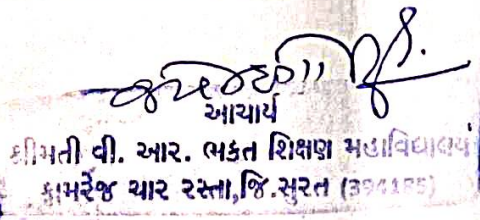 આચાર્ય
શ્રીમતી વી. આર. ભકત શિક્ષણ મહાવિદ્યાલય
કામરેજ ચાર રસ્તા,જિ.સુરત (394185)